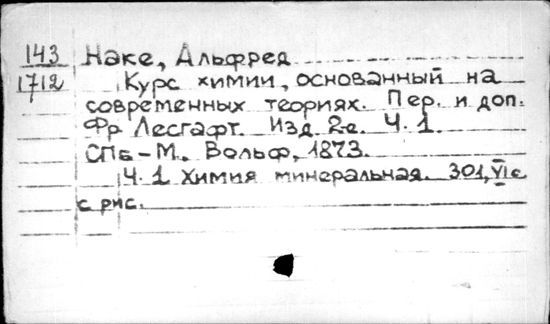 143 Наке, Альфред
1712 Курс химии, основанный на
современных теориях. Пер. и доп.
Фр Лесгафт. Изд. 2-е. Ч. 1.
СПб-М. Вольф, 1873.
Ч. 1 Химия минеральная. 301, VI с
с рис.